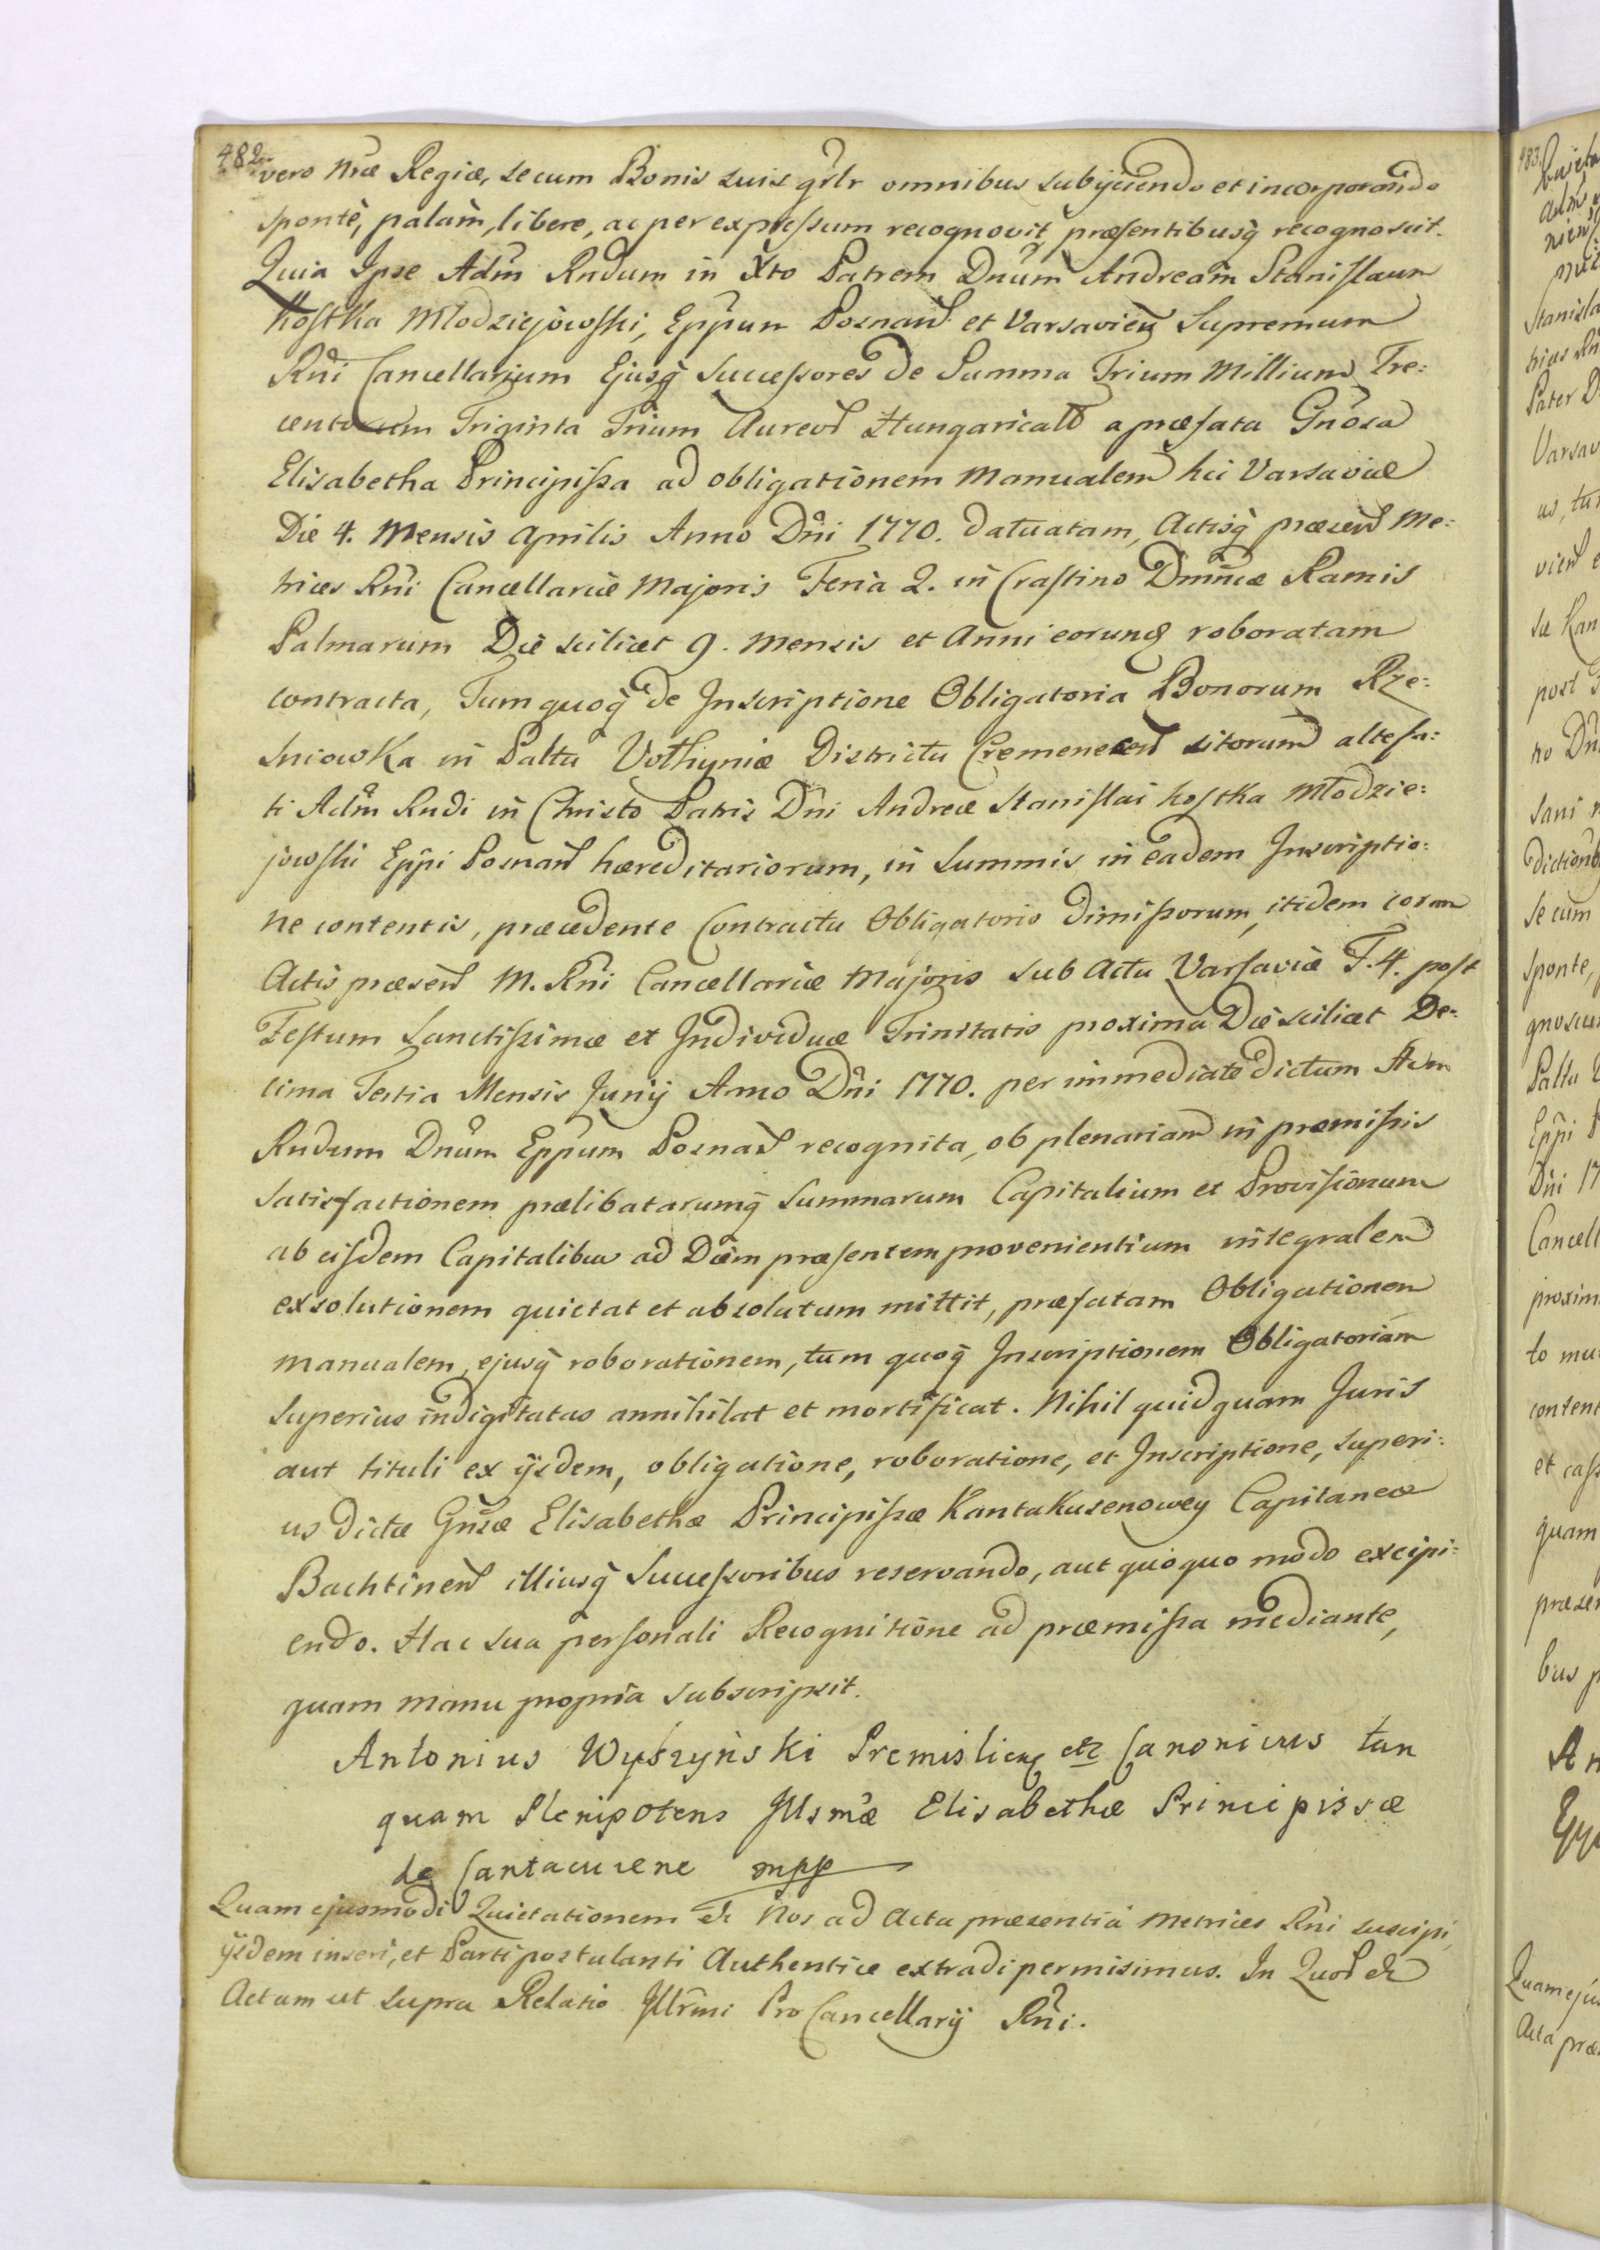 482
vero Nrae Regiae, secum Bonis suis grlr omnibus subijciendo et incorporando
sponte, palam, libere, ac per expressum recognovit, praesentibusq recognoscit.
Quia Ipse Adm Rndum in Xto Patrem Dnum Andream Stanislaum
Kostka Młodziejowski, Eppum Posnan et Varsavien Supremum
Rni Cancellarium Ejusq Successores de Summa Trium Millium Tre:
centorum Triginta Trium Aureor Hungarical a praefata Gnosa
Elisabetha Principissa ad obligationem Manualem hic Varsaviae
Die 4. Mensis Aprilis Anno Dni 1770. datuatam, Actisq praesen Me:
trices Rni Cancellariae Majoris Feria 2. in Crastino Dmnicae Ramis
Palmarum Die scilicet 9. Mensis et Anni eorund roboratam
contracta, Tum quoq de Inscriptione Obligatoria Bonorum Rze:
sniowka in Paltu Volhyniae Districtu Cremenecen sitorum altefa:
ti Adm Rndi in Christo Patris Dni Andreae Stanislai Kostka Młodzie:
jowski Eppi Posnan haereditariorum, in Summis in eadem Inscriptio:
ne contentis, praecedente Contractu Obligatorio dimissorum, itidem coram
Actis praesen M. Rni Cancellariae Majoris sub Actu Varsaviae F. 4. post
Festum Sanctissimae et Individuae Trinitatis proxima Die scilicet De:
cima Tertia Mensis Junij Anno Dni 1770. per immediate dictum Adm
Rndum Dnum Eppum Posnan recognita, ob plenariam in praemissis
satisfactionem praelibatarumq Summarum Capitalium et Provisionum
ab eisdem Capitalibus ad Diem praesentem provenientium integralem
exsolutionem quietat et absolutum mittit, praefatam Obligationem
manualem, ejusq roborationem, tum quoq Inscriptionem Obligatoriam
superius indigitatas annihilat et mortificat. Nihil quidquam Juris
aut tituli ex ijsdem, obligatione, roboratione, et Inscriptione, superi:
us dictae Gnsae Elisabethae Principissae Kantakuzenowey Capitaneae
Bachtinen illiusq Successoribus reservando, aut quoquo modo excipi:
endo. Hac sua personali Recognitione ad praemissa mediante,
quam manu propria subscripsit.
Antonius Wyszyński Premislien etc Canonicus tan
quam Plenipotens Jllsmae Elisabethae Principissae
de Cantacucene mpp
Quam ejusmodi Quietationem etc Nos ad Acta praesentia Metrices Rni suscipi,
ijsdem inseri, et Parti postulanti Authentice extradi permisimus. In Quor etc
Actum ut supra Relatio Jllrmi Pro Cancellarij Rni.